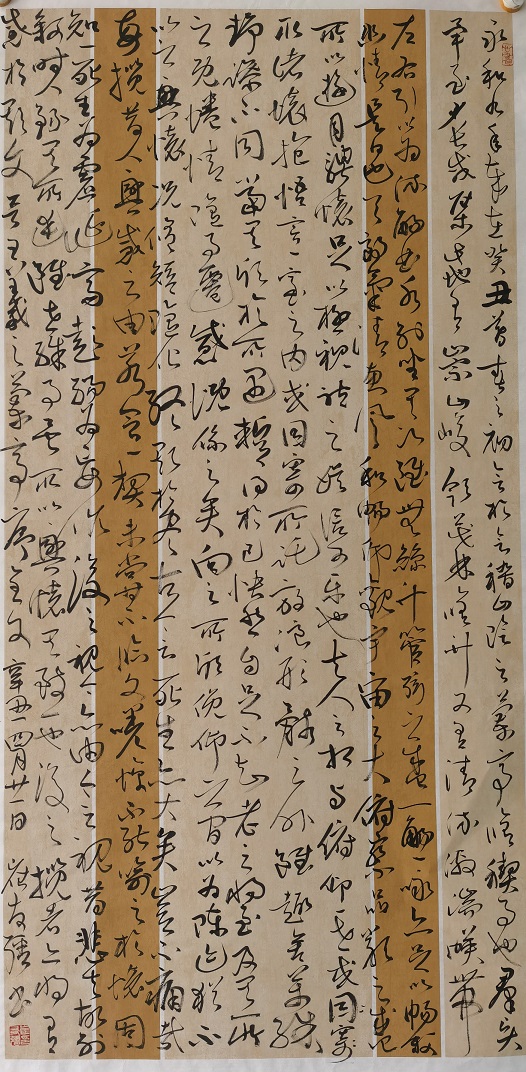 永和九年歲在癸丑暮春之初會於會稽山陰之蘭亭脩禊事也群賢
畢至少長咸集此地有崇山峻領茂林脩竹又有清流激湍映帶
左右引以為流觴曲水列坐其次雖無絲竹管弦之盛一觴一詠亦足以暢敘
幽情是日也天朗氣清惠風和暢仰觀宇宙之大俯察品類之盛
所以遊目騁懷足以極視聽之娛信可樂也夫人之相與俯仰一世或因寄
所諸懷抱悟言一室之內或因寄所託放浪形骸之外雖趣舍萬殊
靜躁不同當其欣於所遇暫得於己快然自足不知老之將至及其所
之既惓情隨事遷感慨係之矣向之所欣俛仰之間以為陳迹猶不
以之興懷況脩短隨化終期於盡古人云死生亦大矣豈不痛哉
每攬昔人興感之由若合一契未嘗不臨文嗟悼不能喻之於懷固
知一死生為虛誕齊彭殤為妄作後之視今亦由今之視昔悲夫故列
敘時人錄其所述雖世殊事異所以興懷其致一也後之攬者亦將有
感於斯文 王羲之蘭亭序全文 辛丑四月廿一日 書